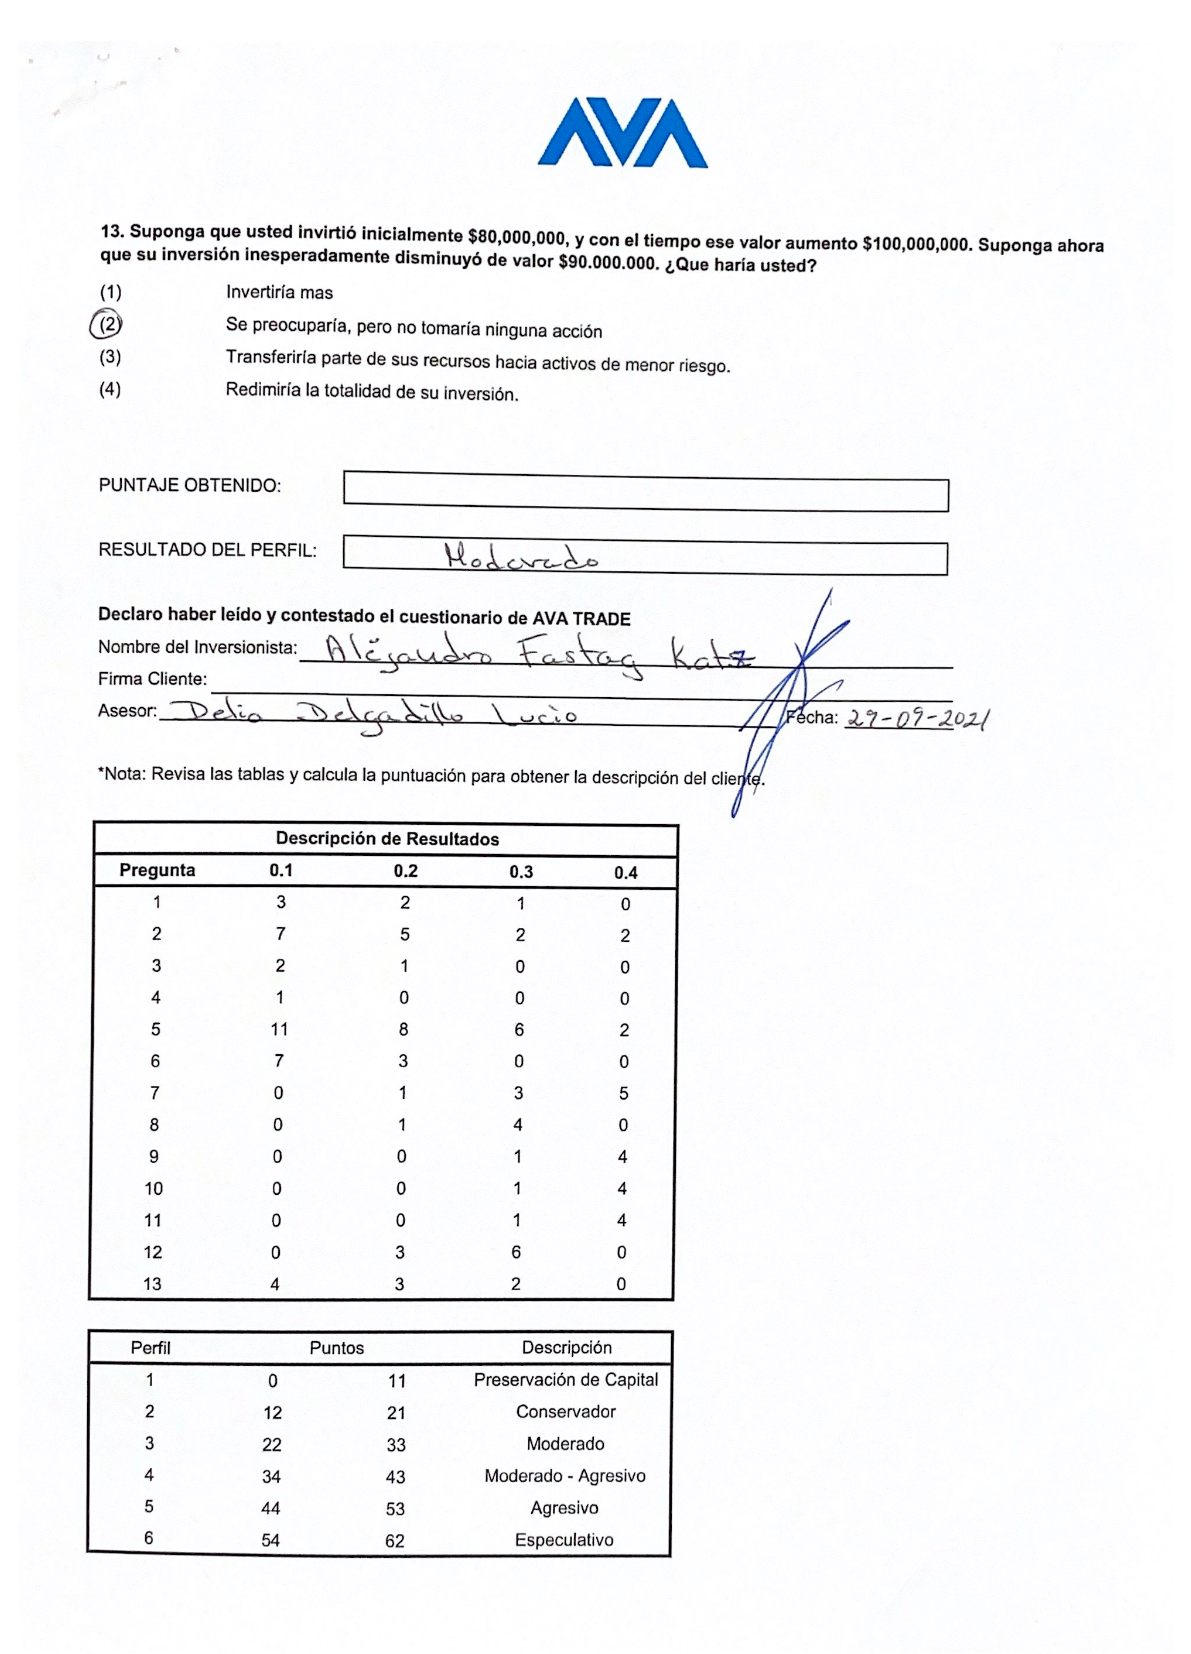 AVA
13. Suponga que usted invirtió inicialmente $80,000,000, y con el tiempo ese valor aumento $100,000,000. Suponga ahora
que su inversión inesperadamente disminuyó de valor $90.000.000. ¿Que haría usted?
(1) Invertiría mas
(2) Se preocuparía, pero no tomaría ninguna acción
(3) Transferiría parte de sus recursos hacia activos de menor riesgo.
(4) Redimiría la totalidad de su inversión.
PUNTAJE OBTENIDO:
RESULTADO DEL PERFIL: Moderado
Declaro haber leído y contestado el cuestionario de AVA TRADE
Nombre del Inversionista: Alejandro Fastag Katz
Firma Cliente:
Asesor: Delia Delgadillo Lucio Fecha: 29-09-2021
*Nota: Revisa las tablas y calcula la puntuación para obtener la descripción del cliente.
Descripción de Resultados
Pregunta 0.1 0.2 0.3 0.4
1 3 2 1 0
2 7 5 2 2
3 2 1 0 0
4 1 0 0 0
5 11 8 6 2
6 7 3 0 0
7 0 1 3 5
8 0 1 4 0
9 0 0 1 4
10 0 0 1 4
11 0 0 1 4
12 0 3 6 0
13 4 3 2 0
Perfil Puntos Descripción
1 0 11 Preservación de Capital
2 12 21 Conservador
3 22 33 Moderado
4 34 43 Moderado - Agresivo
5 44 53 Agresivo
6 54 62 Especulativo